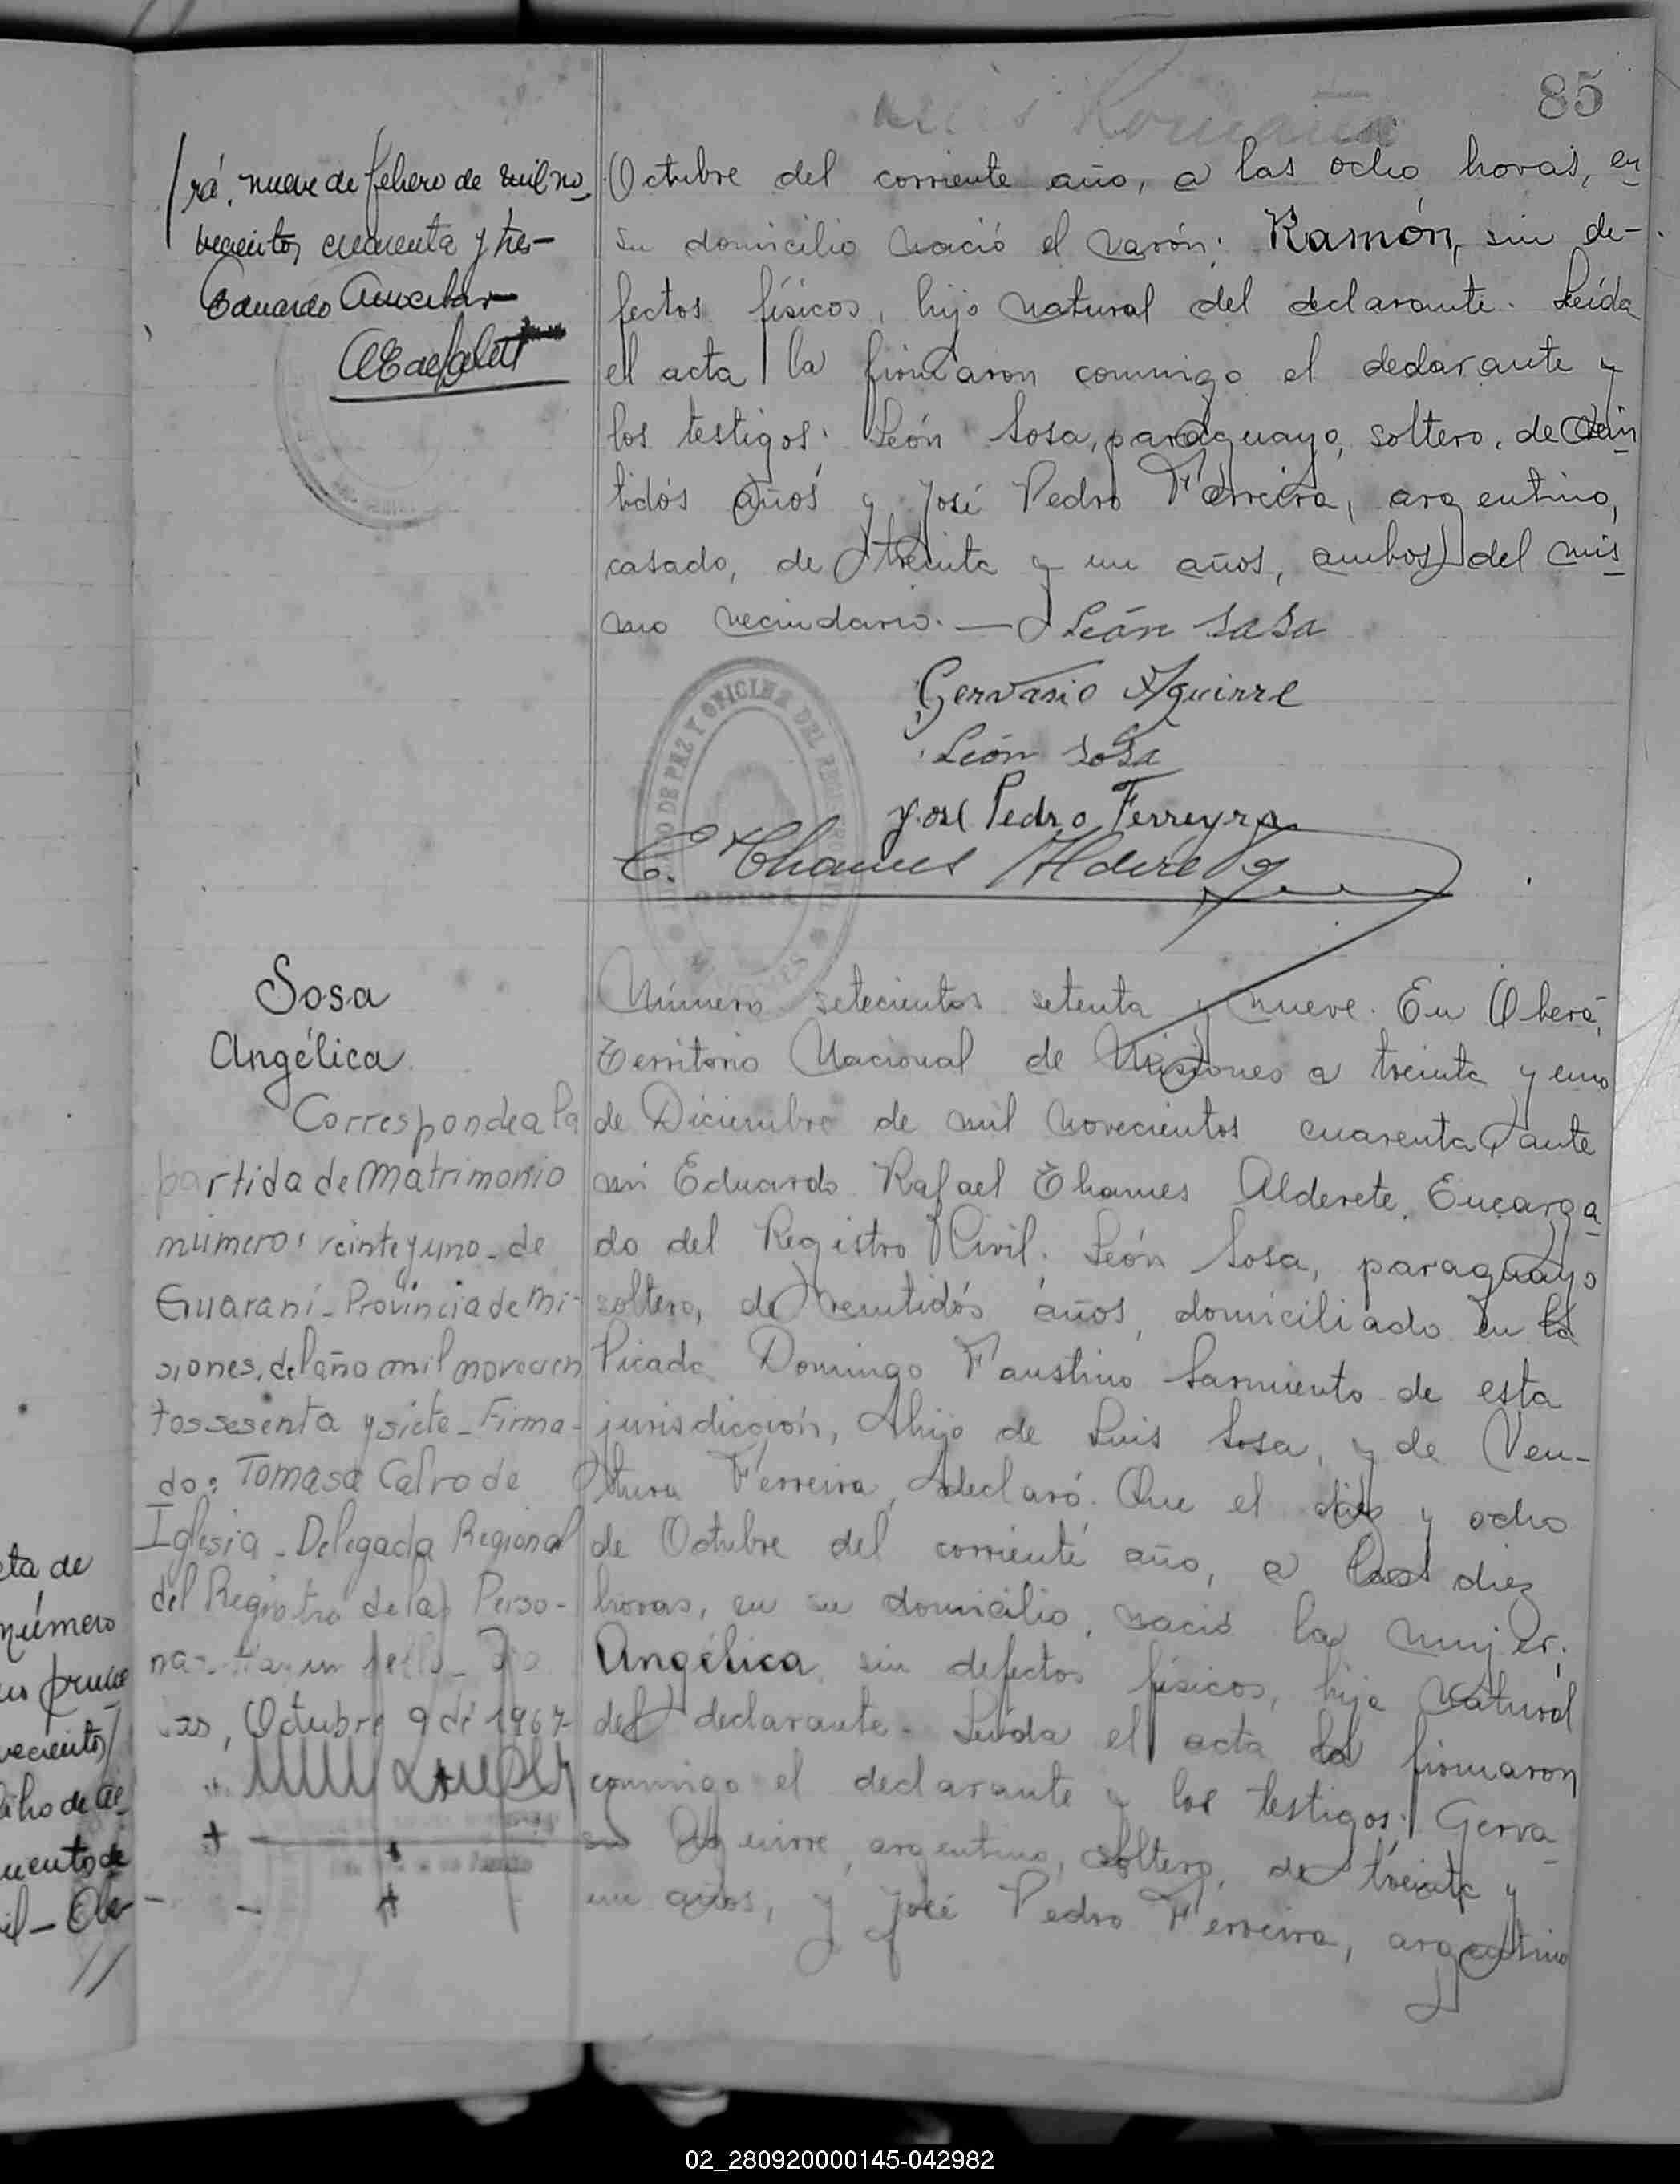 85
Octubre del corriente año, a las ocho horas, en
su domicilio nació el varón: Ramón, sin de-
fectos físicos, hijo natural del declarante. Leída
el acta la firmaron conmigo el declarante y
los testigos: León Sosa, paraguayo, soltero, de vein
tidós años y José Pedro Ferreira, argentino,
casado, de treinta y un años, ambos del mis
mo vecindario. — León Sosa
Gervasio Aguirre
León Sosa
José Pedro Ferreyra
E. Thames Alderete
JUZGADO DE PAZ Y OFICINA DEL REGISTRO CIVIL
OBERÁ
MISIONES
rá, nueve de febrero de mil no-
vecientos cincuenta y tres-
Eduardo
Sosa
Angélica
Corresponde a la
partida de Matrimonio
número: veinte y uno - de
Guaraní - Provincia de Mi-
siones, del año mil novecien
tos sesenta y siete - Firma-
do: Tomasa Calvo de
Iglesia - Delegada Regional
del Registro de las Perso-
nas - Hay un sello -
Octubre 9 de 1967-
Número setecientos setenta y nueve. En Oberá,
Territorio Nacional de Misiones a treinta y uno
de Diciembre de mil novecientos cuarenta ante
mi Eduardo Rafael Thames Alderete, Encarga-
do del Registro Civil. León Sosa, paraguayo
soltero, de veintidós años, domiciliado en la
Picada Domingo Faustino Sarmiento de esta
jurisdicción, hijo de Luis Sosa, y de Ven-
tura Ferreira, declaró: Que el diez y ocho
de Octubre del corriente año, a las diez
horas, en su domicilio, nació la mujer:
Angélica, sin defectos físicos, hija natural
del declarante. Leída el acta la firmaron
conmigo el declarante y los testigos: Gerva-
sio Aguirre, argentino, soltero, de treinta y
un años, y José Pedro Ferreira, argentino
eta de
número
vecientos
02_280920000145-042982